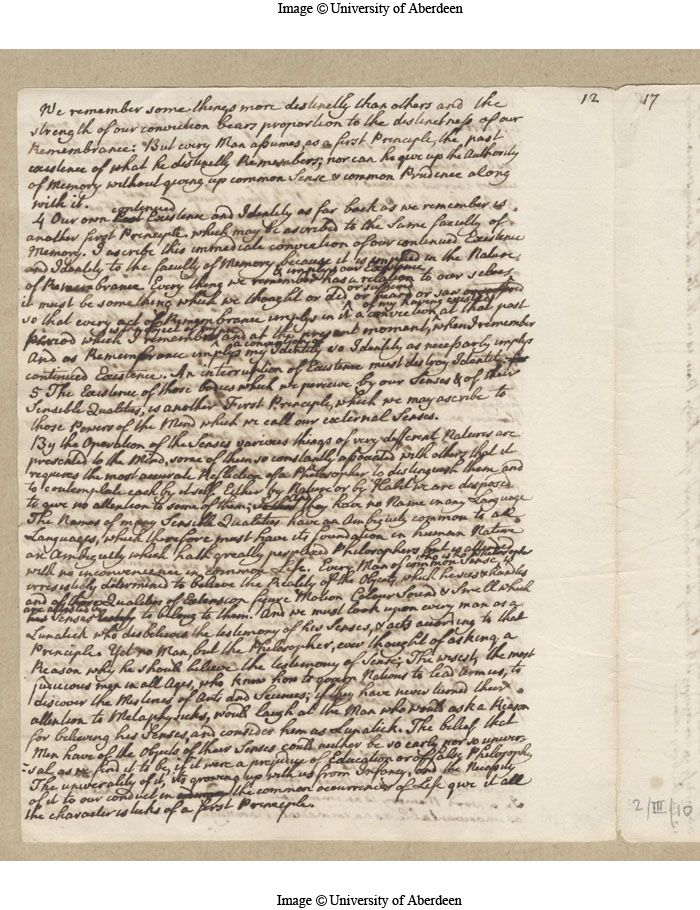 Image © University of Aberdeen
12
17
We remember some things more distinctly than others and the
strength of our conviction bears proportion to the distinctness of our
Remembrance: But every Man assumes, as a first Principle, the past
existence of what he distinctly Remembers; nor can he give up the Authority
of Memory without giving up common Sense & common Prudence along
with it.
continued
4 Our own Existence and Identity as far back as we remember is
another first Principle which may be ascribed to the same faculty of
Memory. I ascribe this immediate conviction of our continued Existence
and Identity to the faculty of Memory because it is implied in the Nature
& implys our Existence
of Remembrance. Every thing we remember has a relation to our selves
or suffered
it must be something which we thought or did or heard or saw
of my having existed
so that every act of Remembrance implys in it a conviction at that past
is an object of
period which I remember and at the present moment, when I remember
a conviction of
And as Remembrance implys my Identity so Identity as necessarly implys
continued Existence. An interruption of Existence must destroy Identity
5 The Existence of those bodies which we perceive by our Senses & of their
Sensible Qualities, is another First Principle, which we may ascribe to
those Powers of the Mind which we call our external Senses.
By the Operation of the Senses various things of very different Natures are
presented to the Mind, some of them so constantly associated with others that it
requires the most accurate Reflection of a Philosopher to distinguish them and
to contemplate each by itself. Either by Nature or by Habit we are disposed
to give no attention to some of them; they have no Name in any Language
The Names of many Sensible Qualities have an Ambiguity common to all
Languages, which therefore must have its foundation in human Nature
an Ambiguity which hath greatly perplexed Philosophers but is attended
with no inconvenience in common Life. Every Man of common Sense,
irresistibly determined to believe the Reality of the Objects which he sees & handles
and Qualities of Extension figure Motion Colour Sound & Smell which
his Senses testify to belong to them. And we must look upon every man as a
Lunatick who disbelieves the testimony of his Senses, & acts according to that
Principle. Yet no Man, but the Philosopher, ever thought of asking a
Reason why he should believe the testimony of Sense; The wisest, the most
judicious men in all Ages, who know how to govern Nations to lead Armies, to
discover the Misteries of Arts and Sciences; if they have never turned their
attention to Metaphysicks, would laugh at the Man who would ask a Reason
for believing his Senses and consider him as a Lunatick. The belief that
Men have of the Objects of their Senses could neither be so early nor so univer-
sal as we find it to be, if it were a prejudice of Education or of false Philosophy
The universality of it, its growing up with us from Infancy, and the Necessity
of it to our conduct in the common occurrences of Life give it all
the characteristicks of a first Principle.
2/III/10
Image © University of Aberdeen